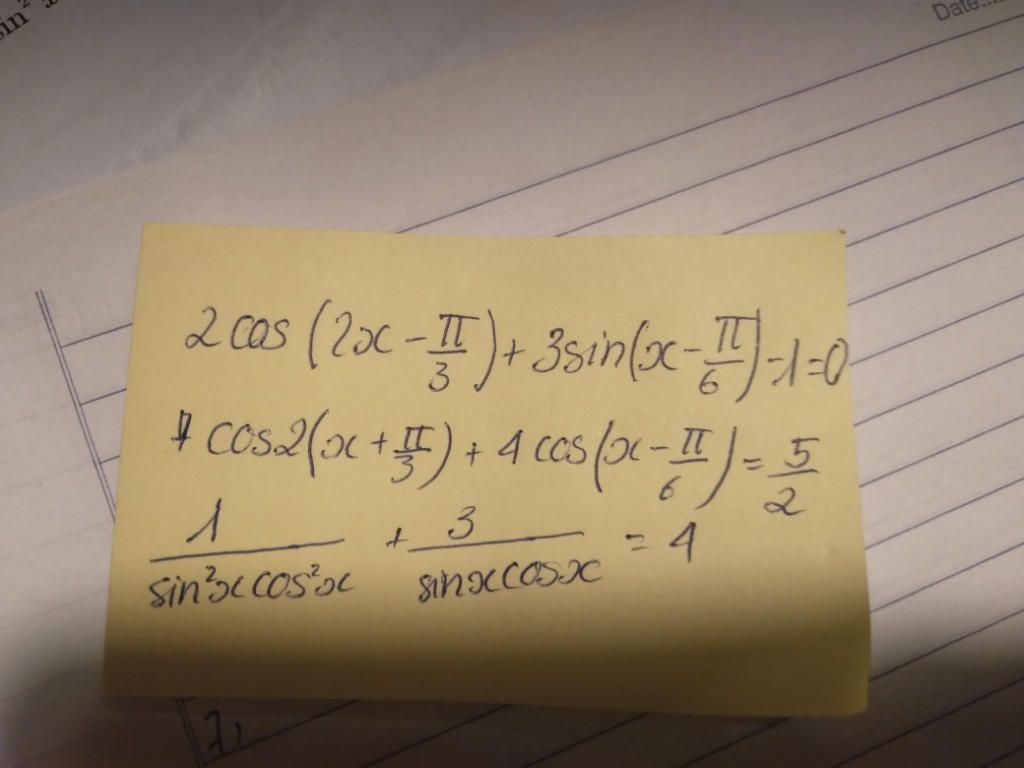 sin² x
Date....
2 cos (2x - π/3) + 3 sin(x - π/6) - 1 = 0
cos2(x + π/3) + 4 cos(x - π/6) = 5/2
1/(sin²x cos²x) + 3/(sinx cosx) = 4
7,